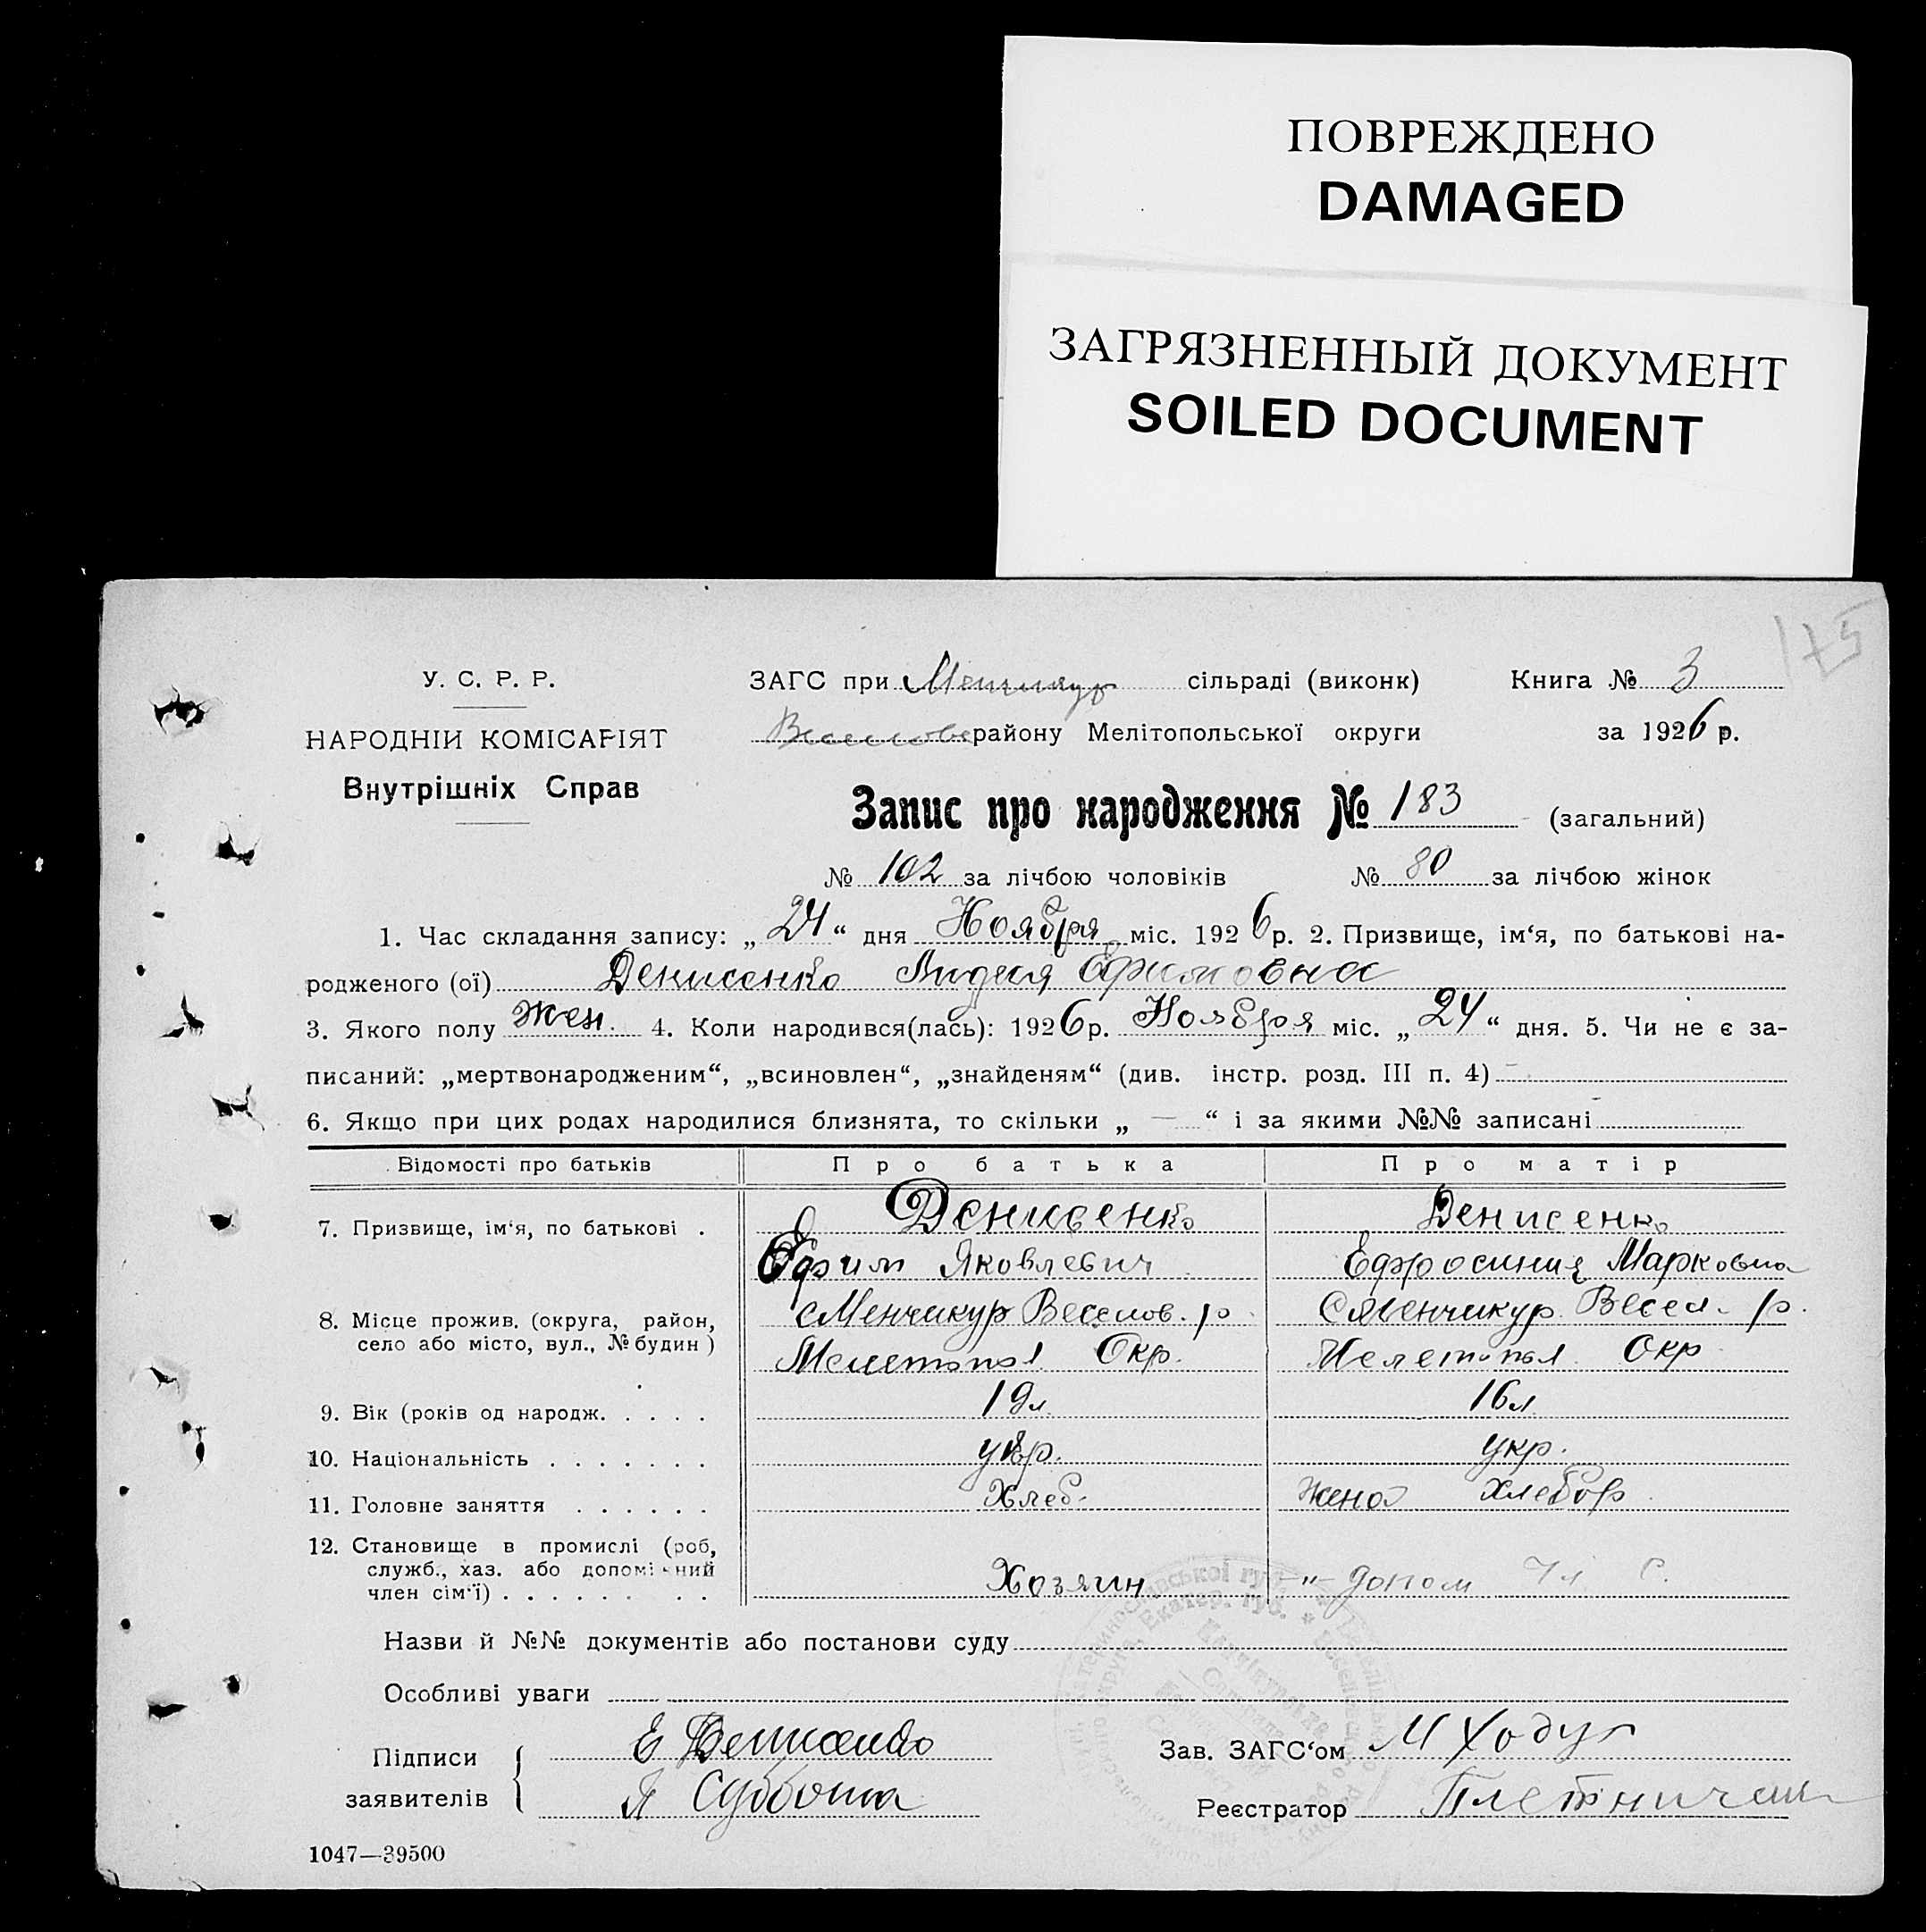 ПОВРЕЖДЕНО
DAMAGED
ЗАГРЯЗНЕННЫЙ ДОКУМЕНТ
SOILED DOCUMENT
175
У. С. Р. Р.
НАРОДНІЙ КОМІСАРІЯТ
Внутрішніх Справ
ЗАГС при Менчикур сільраді (виконк) Книга № 3
Веселовс району Мелітопольської округи за 1926 р.
Запис про народження № 183 (загальний)
№ 102 за лічбою чоловіків № 80 за лічбою жінок
1. Час складання запису: „24“ дня Ноября міс. 1926 р. 2. Призвище, ім‘я, по батькові на-
родженого (ої) Денисенко Лидия Ефимовна
3. Якого полу жен. 4. Коли народився(лась): 1926 р. Ноября міс. „24“ дня. 5. Чи не є за-
писаний: „мертвонародженим“, „всиновлен“, „знайденям“ (див. інстр. розд. III п. 4) —
6. Якщо при цих родах народилися близнята, то скільки „ — “ і за якими №№ записані —
Відомості про батьків Про батька Про матір
7. Призвище, ім‘я, по батькові . Денисенко Денисенко
Ефим Яковлевич Ефросиния Марковна
8. Місце прожив. (округа, район, село або місто, вул., № будин) с Менчикур Веселов. р. С Менчикур Весел. р.
Мелетопол Окр. Мелетопол Окр
9. Вік (років од народж. . . . . 19 л. 16 л.
10. Національність . . . . . . . укр. укр.
11. Головне заняття . . . . . . Хлеб. жена хлебор
12. Становище в промислі (роб, служб., хаз. або допоміжний член сім‘ї) . . . . . . . . Хозяин —"— допом чл С.
Назви й №№ документів або постанови суду
Особливі уваги
Підписи заявителів
Е Денисенко
Я Суббота
Зав. ЗАГС‘ом М Ходус
Реєстратор
1047—39500